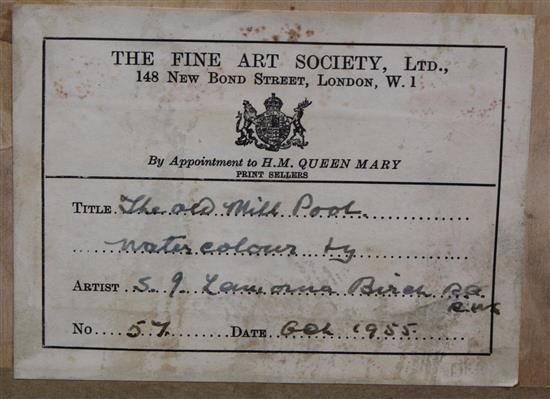 THE FINE ART SOCIETY, LTD.,
148 NEW BOND STREET, LONDON, W.1
By Appointment to H.M. QUEEN MARY
PRINT SELLERS
TITLE The old Mill Pool.
Watercolour by
ARTIST S J Lamorna Birch RA
RWS
No 57 DATE Oct 1955